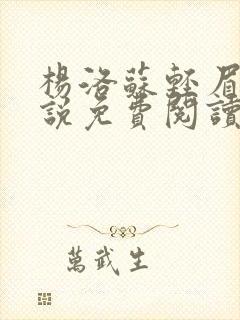 楊洛蘇輕眉
說免費閱讀
萬武生